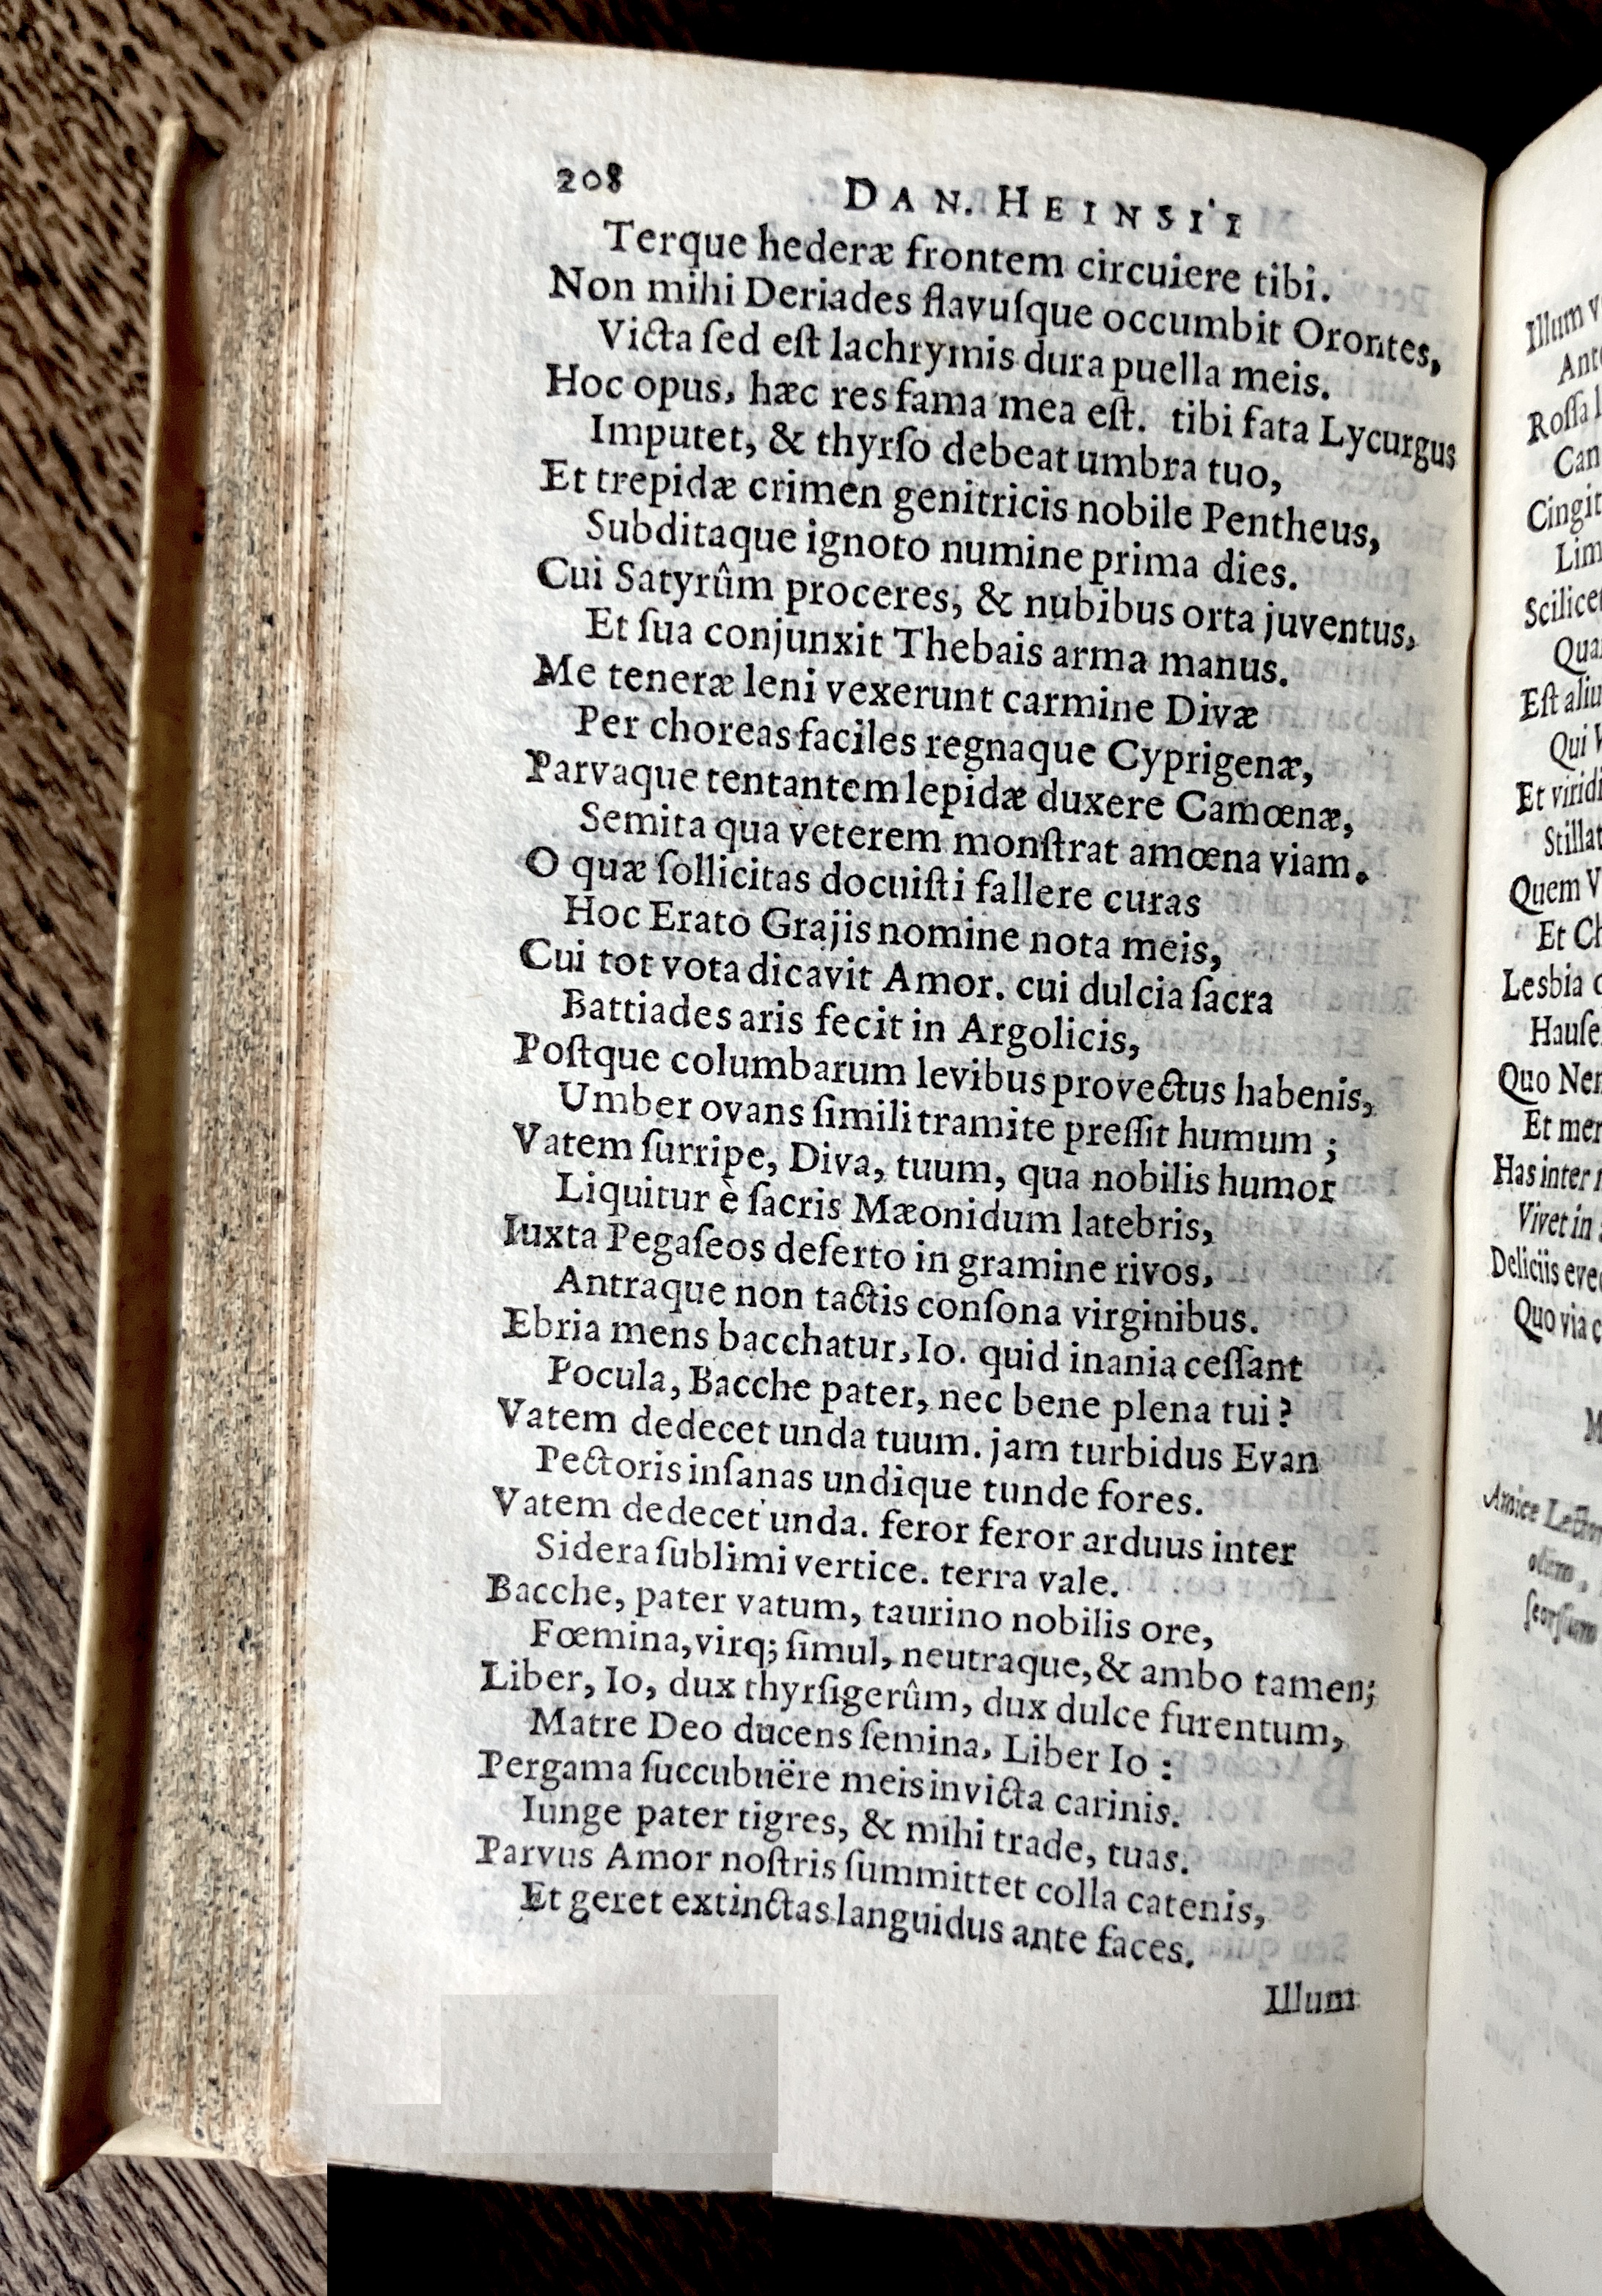 208
DAN. HEINSII
Terque hederæ frontem circuiere tibi.
Non mihi Deriades flavuſque occumbit Orontes,
Victa ſed eſt lachrymis dura puella meis.
Hoc opus, hæc res fama mea eſt. tibi fata Lycurgus
Imputet, & thyrſo debeat umbra tuo,
Et trepidæ crimen genitricis nobile Pentheus,
Subditaque ignoto numine prima dies.
Cui Satyrûm proceres, & nubibus orta juventus,
Et ſua conjunxit Thebais arma manus.
Me teneræ leni vexerunt carmine Divæ
Per choreas faciles regnaque Cyprigenæ,
Parvaque tentantem lepidæ duxere Camœnæ,
Semita qua veterem monſtrat amœna viam.
O quæ ſollicitas docuiſti fallere curas
Hoc Erato Grajis nomine nota meis,
Cui tot vota dicavit Amor. cui dulcia ſacra
Battiades aris fecit in Argolicis,
Poſtque columbarum levibus provectus habenis,
Umber ovans ſimili tramite preſſit humum ;
Vatem ſurripe, Diva, tuum, qua nobilis humor
Liquitur è ſacris Mæonidum latebris,
Iuxta Pegaſeos deſerto in gramine rivos,
Antraque non tactis conſona virginibus.
Ebria mens bacchatur, Io. quid inania ceſſant
Pocula, Bacche pater, nec bene plena tui?
Vatem dedecet unda tuum. jam turbidus Evan
Pectoris inſanas undique tunde fores.
Vatem dedecet unda. feror feror arduus inter
Sidera ſublimi vertice. terra vale.
Bacche, pater vatum, taurino nobilis ore,
Fœmina, virq; ſimul, neutraque, & ambo tamen;
Liber, Io, dux thyrſigerûm, dux dulce furentum,
Matre Deo ducens ſemina, Liber Io :
Pergama ſuccubuëre meis invicta carinis.
Iunge pater tigres, & mihi trade, tuas.
Parvus Amor noſtris ſummittet colla catenis,
Et geret extinctas languidus ante faces.
Illum
Illum
Cingit
Et viridi
Quem
Lesbia
Has inter
Vivet in
Deliciis
Quo via
Amice